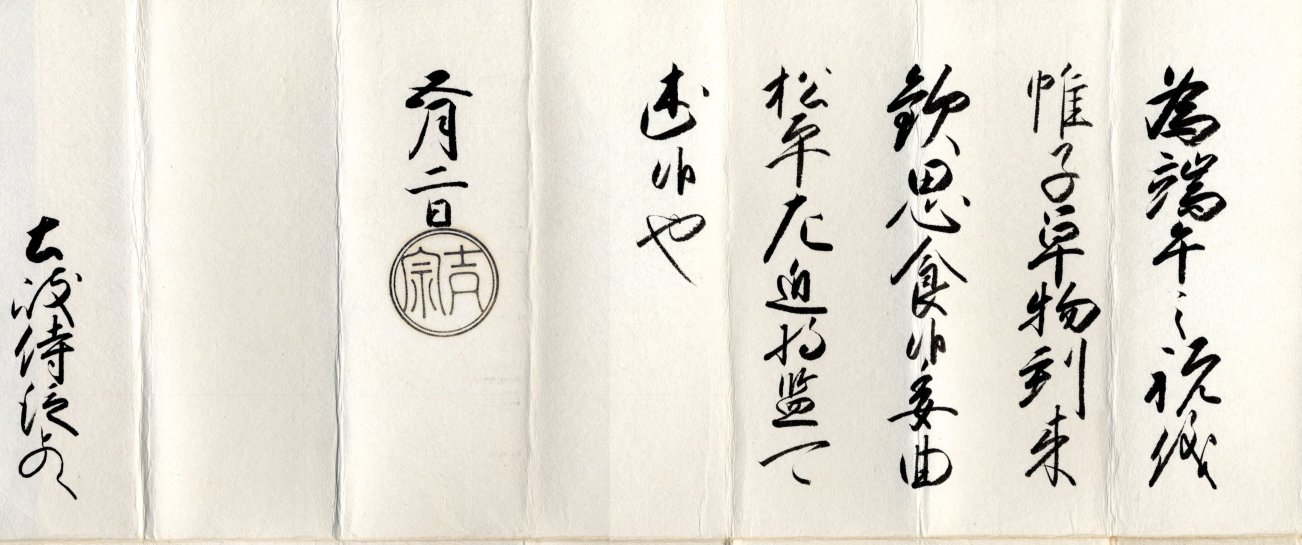 為端午之祝儀
帷子単物到来
歓思食候委曲
松平左近将監可
述候也
五月二日
吉宗
土岐侍従とのへ